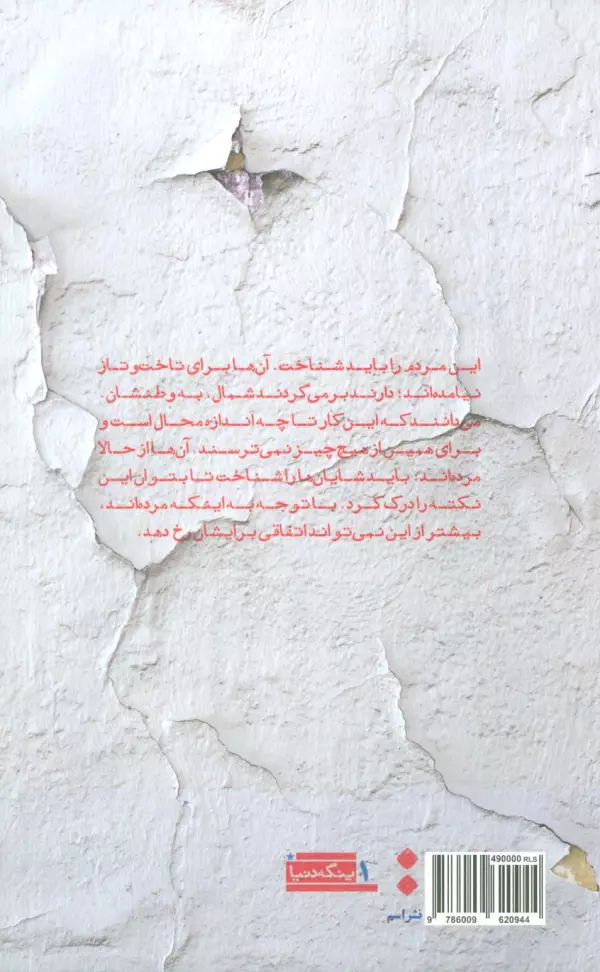 این مردم را باید شناخت. آن‌ها برای تاخت‌و‌تاز
نیامده‌اند؛ دارند برمی‌گردند شمال، به وطنشان.
می‌دانند که این کار تا چه اندازه محال است و
برای همین از هیچ چیز نمی‌ترسند. آن‌ها از حالا
مرده‌اند. باید شایان‌ها را شناخت تا بتوان این
نکته را درک کرد. با توجه به اینکه مرده‌اند،
بیشتر از این نمی‌تواند اتفاقی برایشان رخ دهد.
490000 RLS
ینگه دنیا
نشر اسم
9 786009 620944